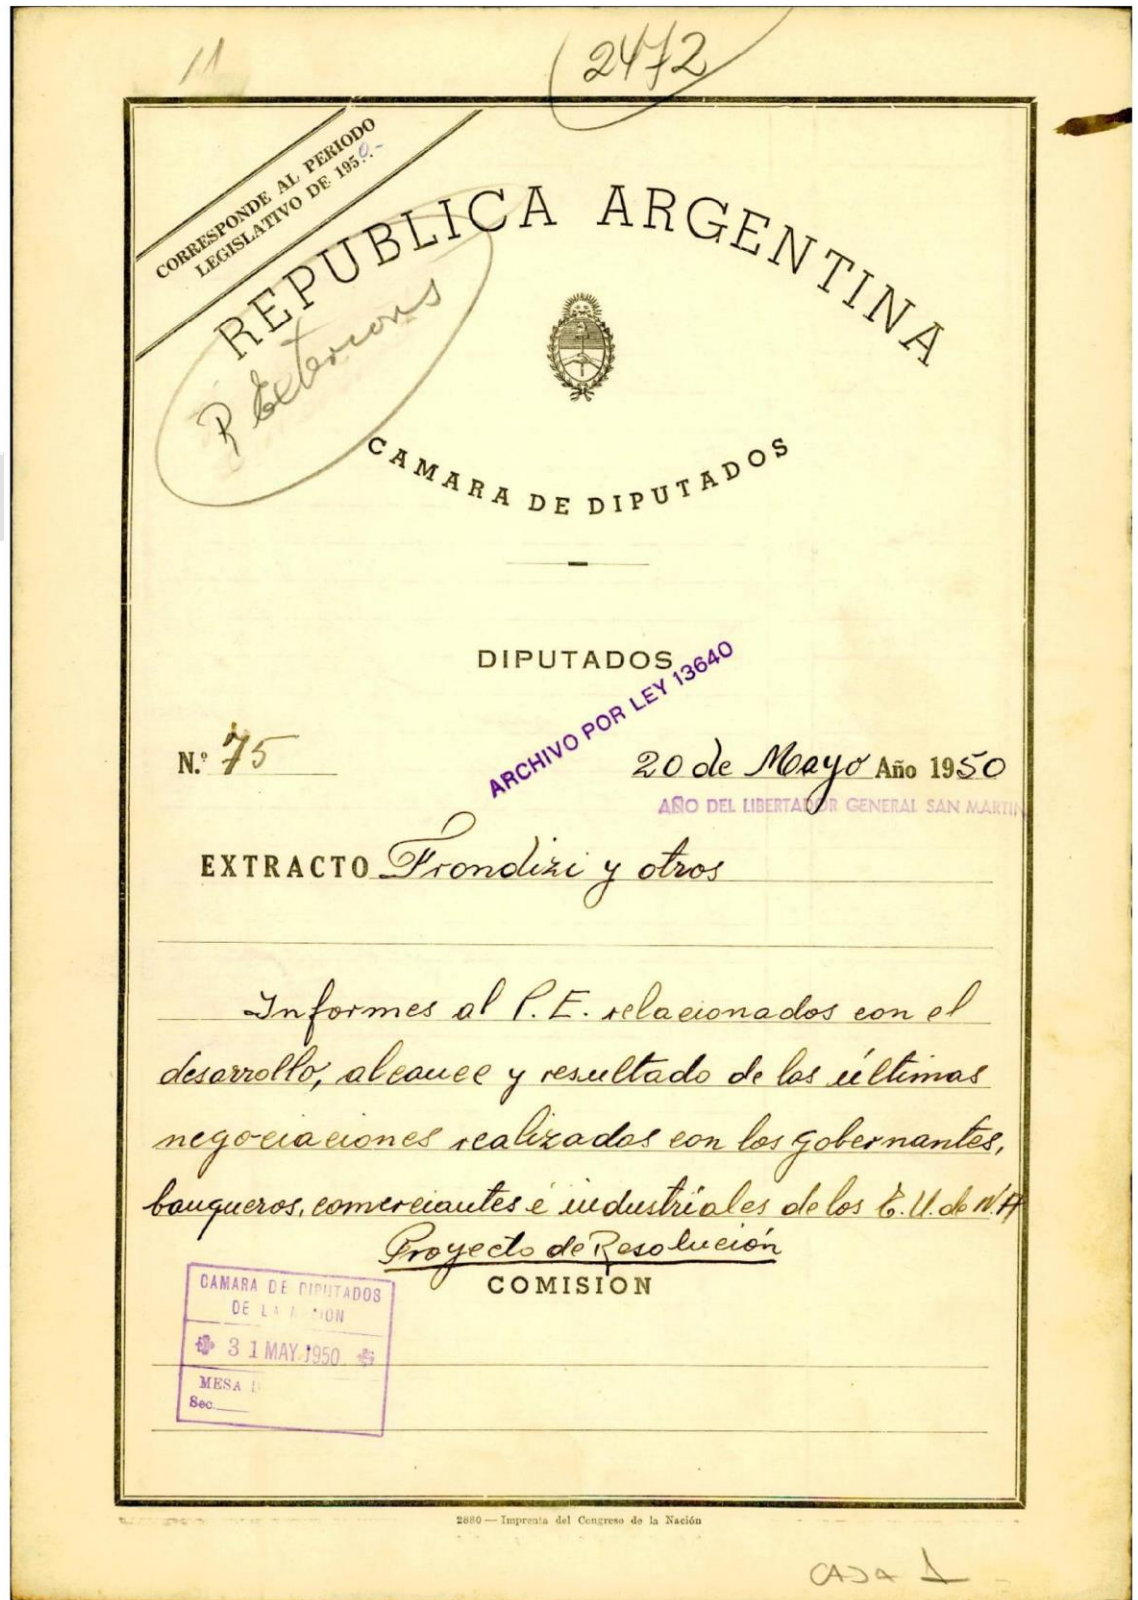 11
2472
CORRESPONDE AL PERIODO
LEGISLATIVO DE 1950.-
REPUBLICA ARGENTINA
R Exteriores
CAMARA DE DIPUTADOS
DIPUTADOS
ARCHIVO POR LEY 13640
N.º 75
20 de Mayo Año 1950
AÑO DEL LIBERTADOR GENERAL SAN MARTIN
EXTRACTO Frondizi y otros
Informes al P.E. relacionados con el
desarrollo, alcance y resultado de las últimas
negociaciones realizadas con los gobernantes,
banqueros, comerciantes é industriales de los E.U. de N.A
Proyecto de Resolución
COMISION
CAMARA DE DIPUTADOS
DE LA NACION
31 MAY 1950
MESA
Sec.
2880 — Imprenta del Congreso de la Nación
CAJA 1